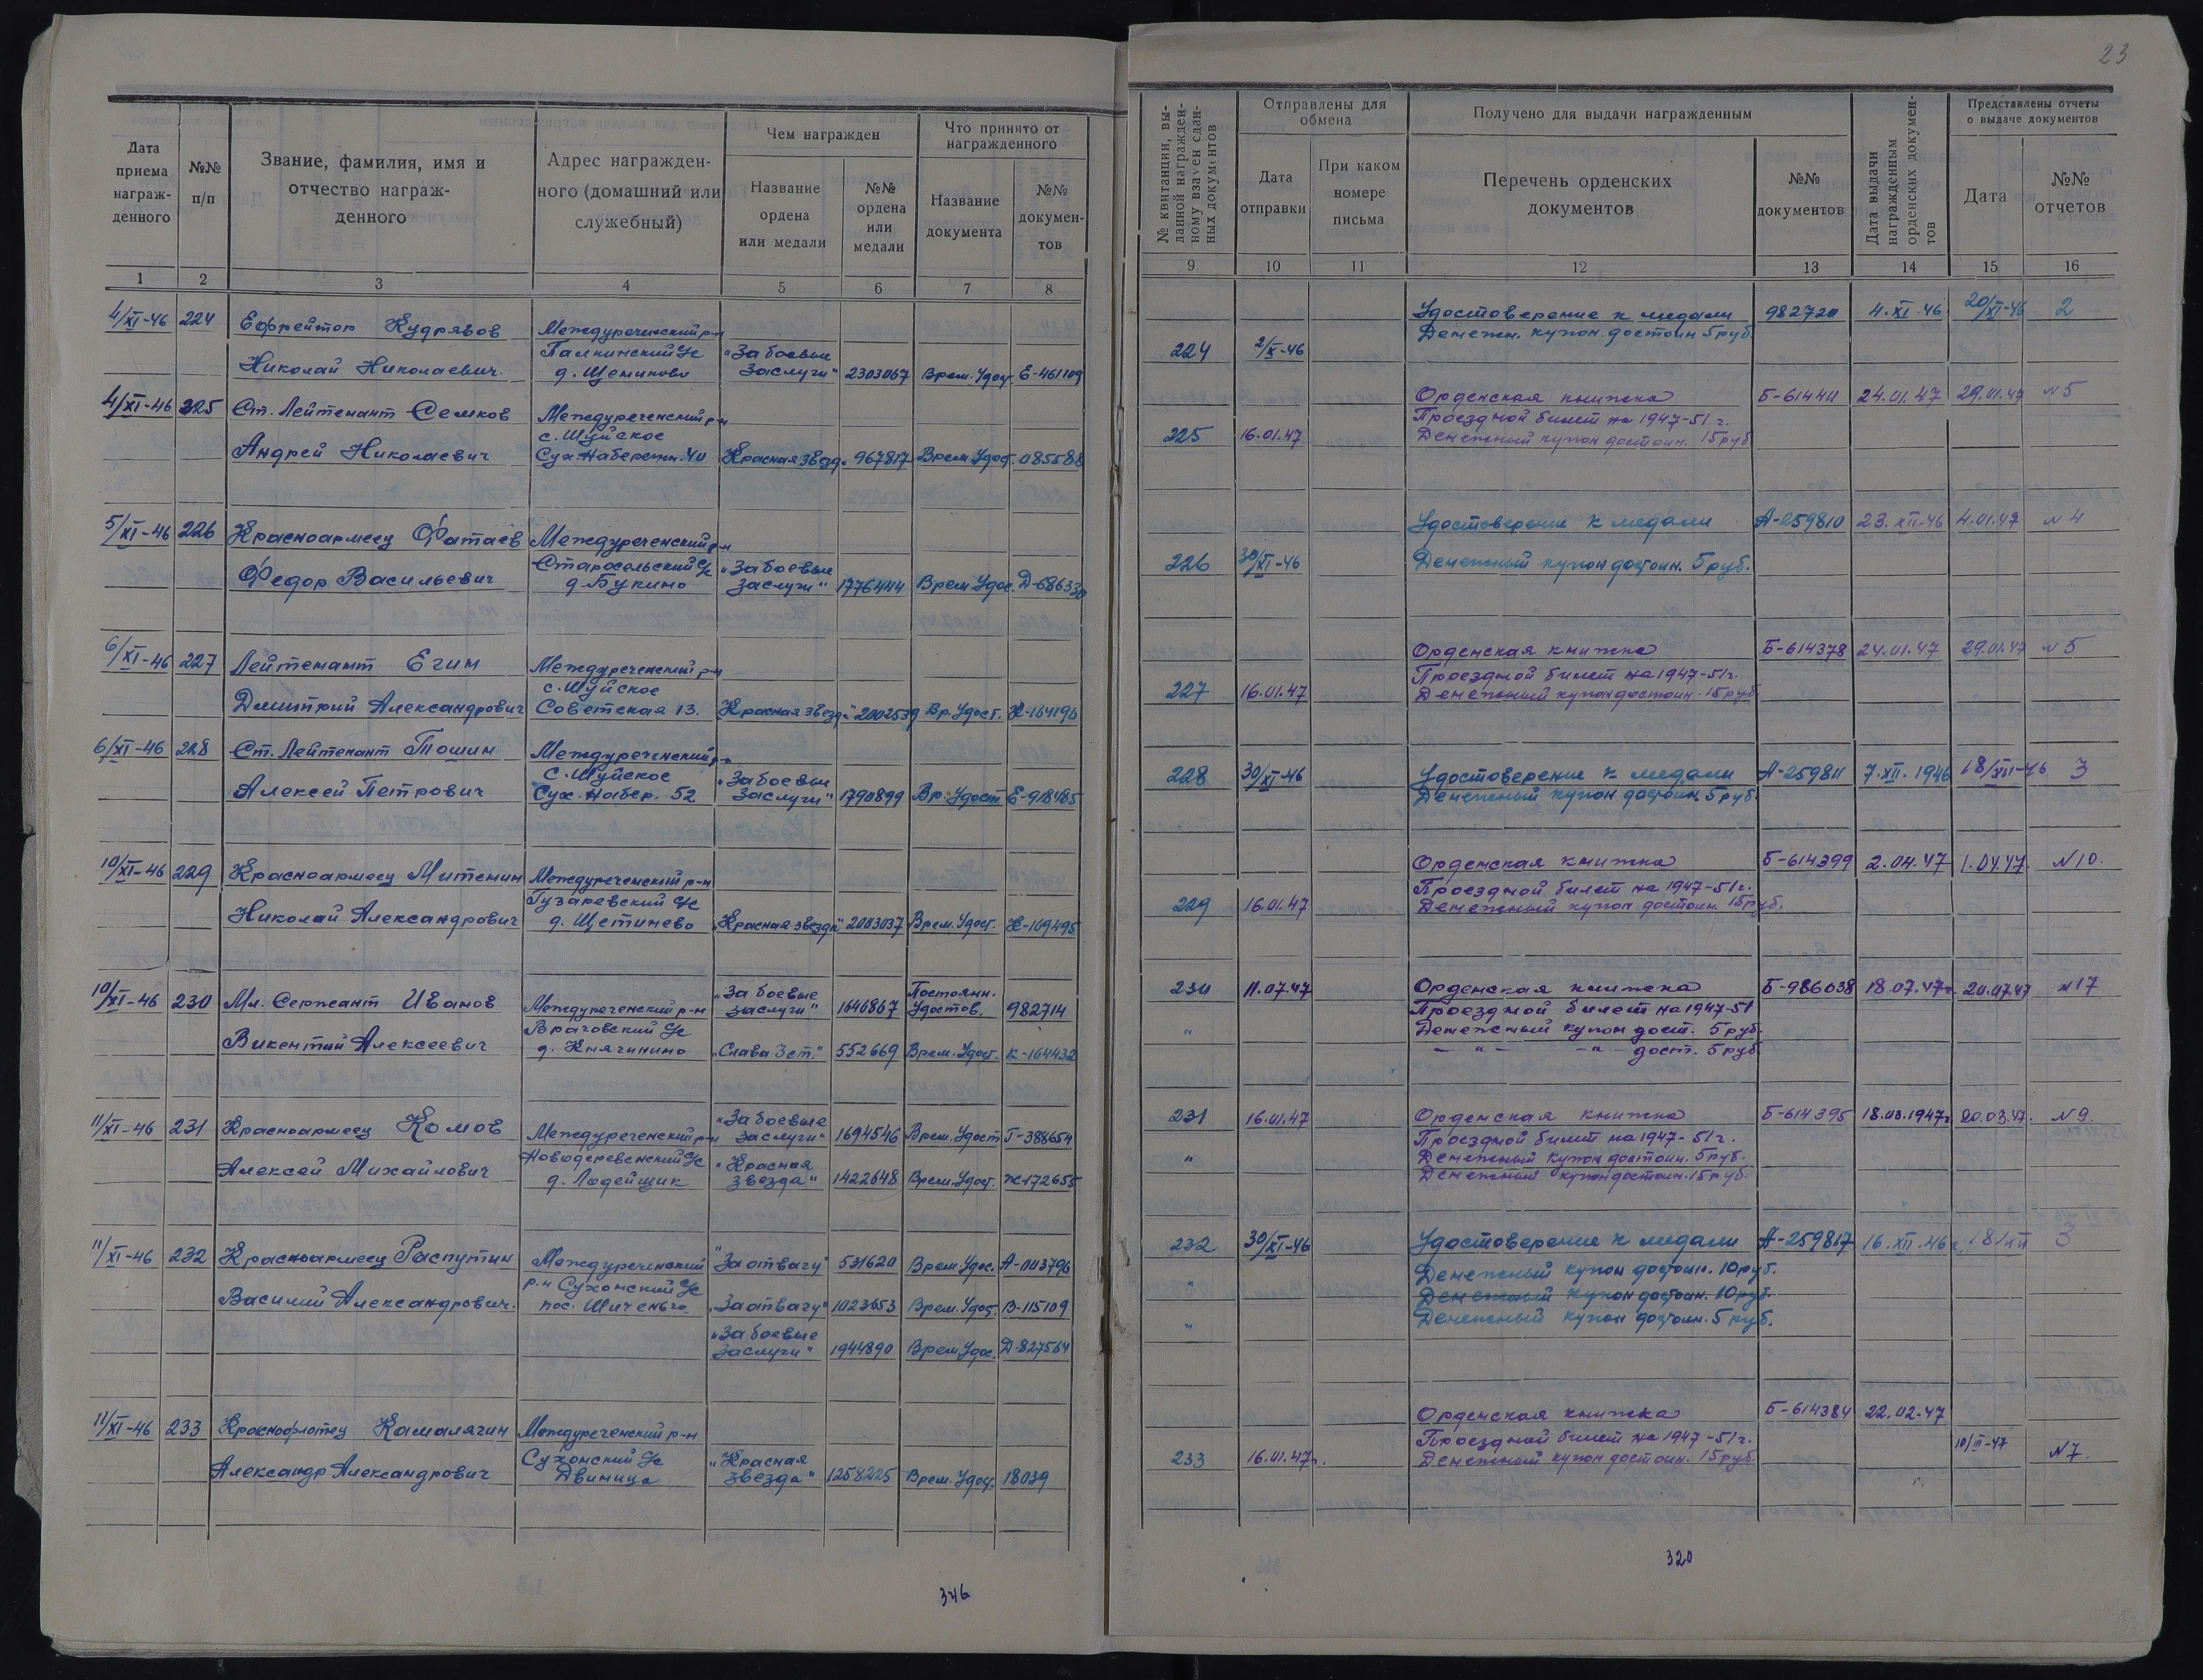 23
Дата приема награж-денного
№№ п/п
Звание, фамилия, имя и отчество награж-денного
Адрес награжден-ного (домашний или служебный)
Чем награжден
Название ордена или медали
№№ ордена или медали
Что принято от награжденного
Название документа
№№ докумен-тов
№ квитанции, вы-данной награжден-ному взамен сдан-ных документов
Отправлены для обмена
Дата отправки
При каком номере письма
Получено для выдачи награжденным
Перечень орденских документов
№№ документов
Дата выдачи награжденным орденских докумен-тов
Представлены отчеты о выдаче документов
Дата
№№ отчетов
1 2 3 4 5 6 7 8
9 10 11 12 13 14 15 16
4/XI-46 224 Ефрейтор Кудрявов Междуреченский р-н
Галкинский с/с
Николай Николаевич д. Щеминово "За боевые заслуги" 2303067 Врем. Удост. Е-461109
Удостоверение к медали 982720 4.XI.46 20/XI-46 2
Денежн. купон достоин 5 руб.
224 2/X-46
4/XI-46 225 Ст. Лейтенант Семков Междуреченский р-н
с. Шуйское
Андрей Николаевич Сух. Набережн. 40 Красная звезда 967817 Врем. Удост. 085588
Орденская книжка Б-614411 24.01.47 29.01.47 №5
Проездной билет на 1947-51 г.
225 16.01.47 Денежный купон достоин. 15 руб.
5/XI-46 226 Красноармеец Фатаев Междуреченский р-н
Старосельский с/с
Федор Васильевич д. Букино "За боевые заслуги" 1776444 Врем. Удос. Д-686330
Удостоверение к медали А-259810 23.XII-46 4.01.47 №4
226 30/XI-46 Денежный купон достоин. 5 руб.
6/XI-46 227 Лейтенант Егин Междуреченский р-н
с. Шуйское
Дмитрий Александрович Советская 13. Красная звезда" 2002539 Вр. Удост. Ж-164190
Орденская книжка Б-614378 24.01.47 29.01.47 №5
Проездной билет на 1947-51 г.
227 16.01.47 Денежный купон достоин. 15 руб
6/XI-46 228 Ст. Лейтенант Тошин Междуреченский р-н
с. Шуйское
Алексей Петрович Сух. Набер. 52 "За боевые заслуги" 1790899 Вр. Удост Е-918485
228 30/XI-46 Удостоверение к медали А-259811 7.XII.1946 18/XII-46 3
Денежный купон достоин 5 руб.
10/XI-46 229 Красноармеец Митенин Междуреченский р-н
Гузаревский с/с
Николай Александрович д. Щетинево "Красная звезда" 2003037 Врем. Удост. Ж-169495
Орденская книжка Б-614399 2.04.47 1.04.47. №10.
Проездной билет на 1947-51 г.
229 16.01.47 Денежный купон достоин. 15 руб.
10/XI-46 230 Мл. Сержант Иванов Междуреченский р-н "За боевые заслуги" 1640867 Постоянн. Удостов. 982714
Врачовский с/с
Викентий Алексеевич д. Княгинино "Слава 3 ст." 552669 Врем. Удост. К-164432
230 11.07.47 Орденская книжка Б-986038 18.07.47г. 20.07.47 №17
Проездной билет на 1947-51
" Денежный купон дост. 5 руб.
- " - - " - дост. 5 руб
11/XI-46 231 Красноармеец Комов Междуреченский р-н "За боевые заслуги" 1694546 Врем. Удост Г-388654
Новодеревенский с/с
Алексей Михайлович д. Лодейщик "Красная звезда" 1422648 Врем. Удост. Ж-172655
231 16.01.47 Орденская книжка Б-614395 18.03.1947г 20.03.47. №9.
Проездной билет на 1947-51 г.
" Денежный купон достоин. 5 руб.
Денежный купон достоин. 15 руб.
11/XI-46 232 Красноармеец Распутин Междуреченский "За отвагу" 531620 Врем. Удос. А-003796
р-н Сухонский с/с
Василий Александрович. пос. Шиченьга "За отвагу" 1023653 Врем. Удост. В-115109
"За боевые заслуги" 1944890 Врем. Удос. Д-827564
232 30/XI-46 Удостоверение к медали А-259817 16.XII.46г. 18/XII 3
Денежный купон достоин. 10 руб.
" Денежный купон достоин. 10 руб.
" Денежный купон достоин. 5 руб.
11/XI-46 233 Краснофлотец Камалягин Междуреченский р-н
Сухонский с/с
Александр Александрович Двиница "Красная звезда" 1258225 Врем. Удост. 18039
Орденская книжка Б-614384 22.02.47
Проездной билет на 1947-51 г. 10/III-47
233 16.01.47г. Денежный купон достоин. 15 руб. №7.
346
320